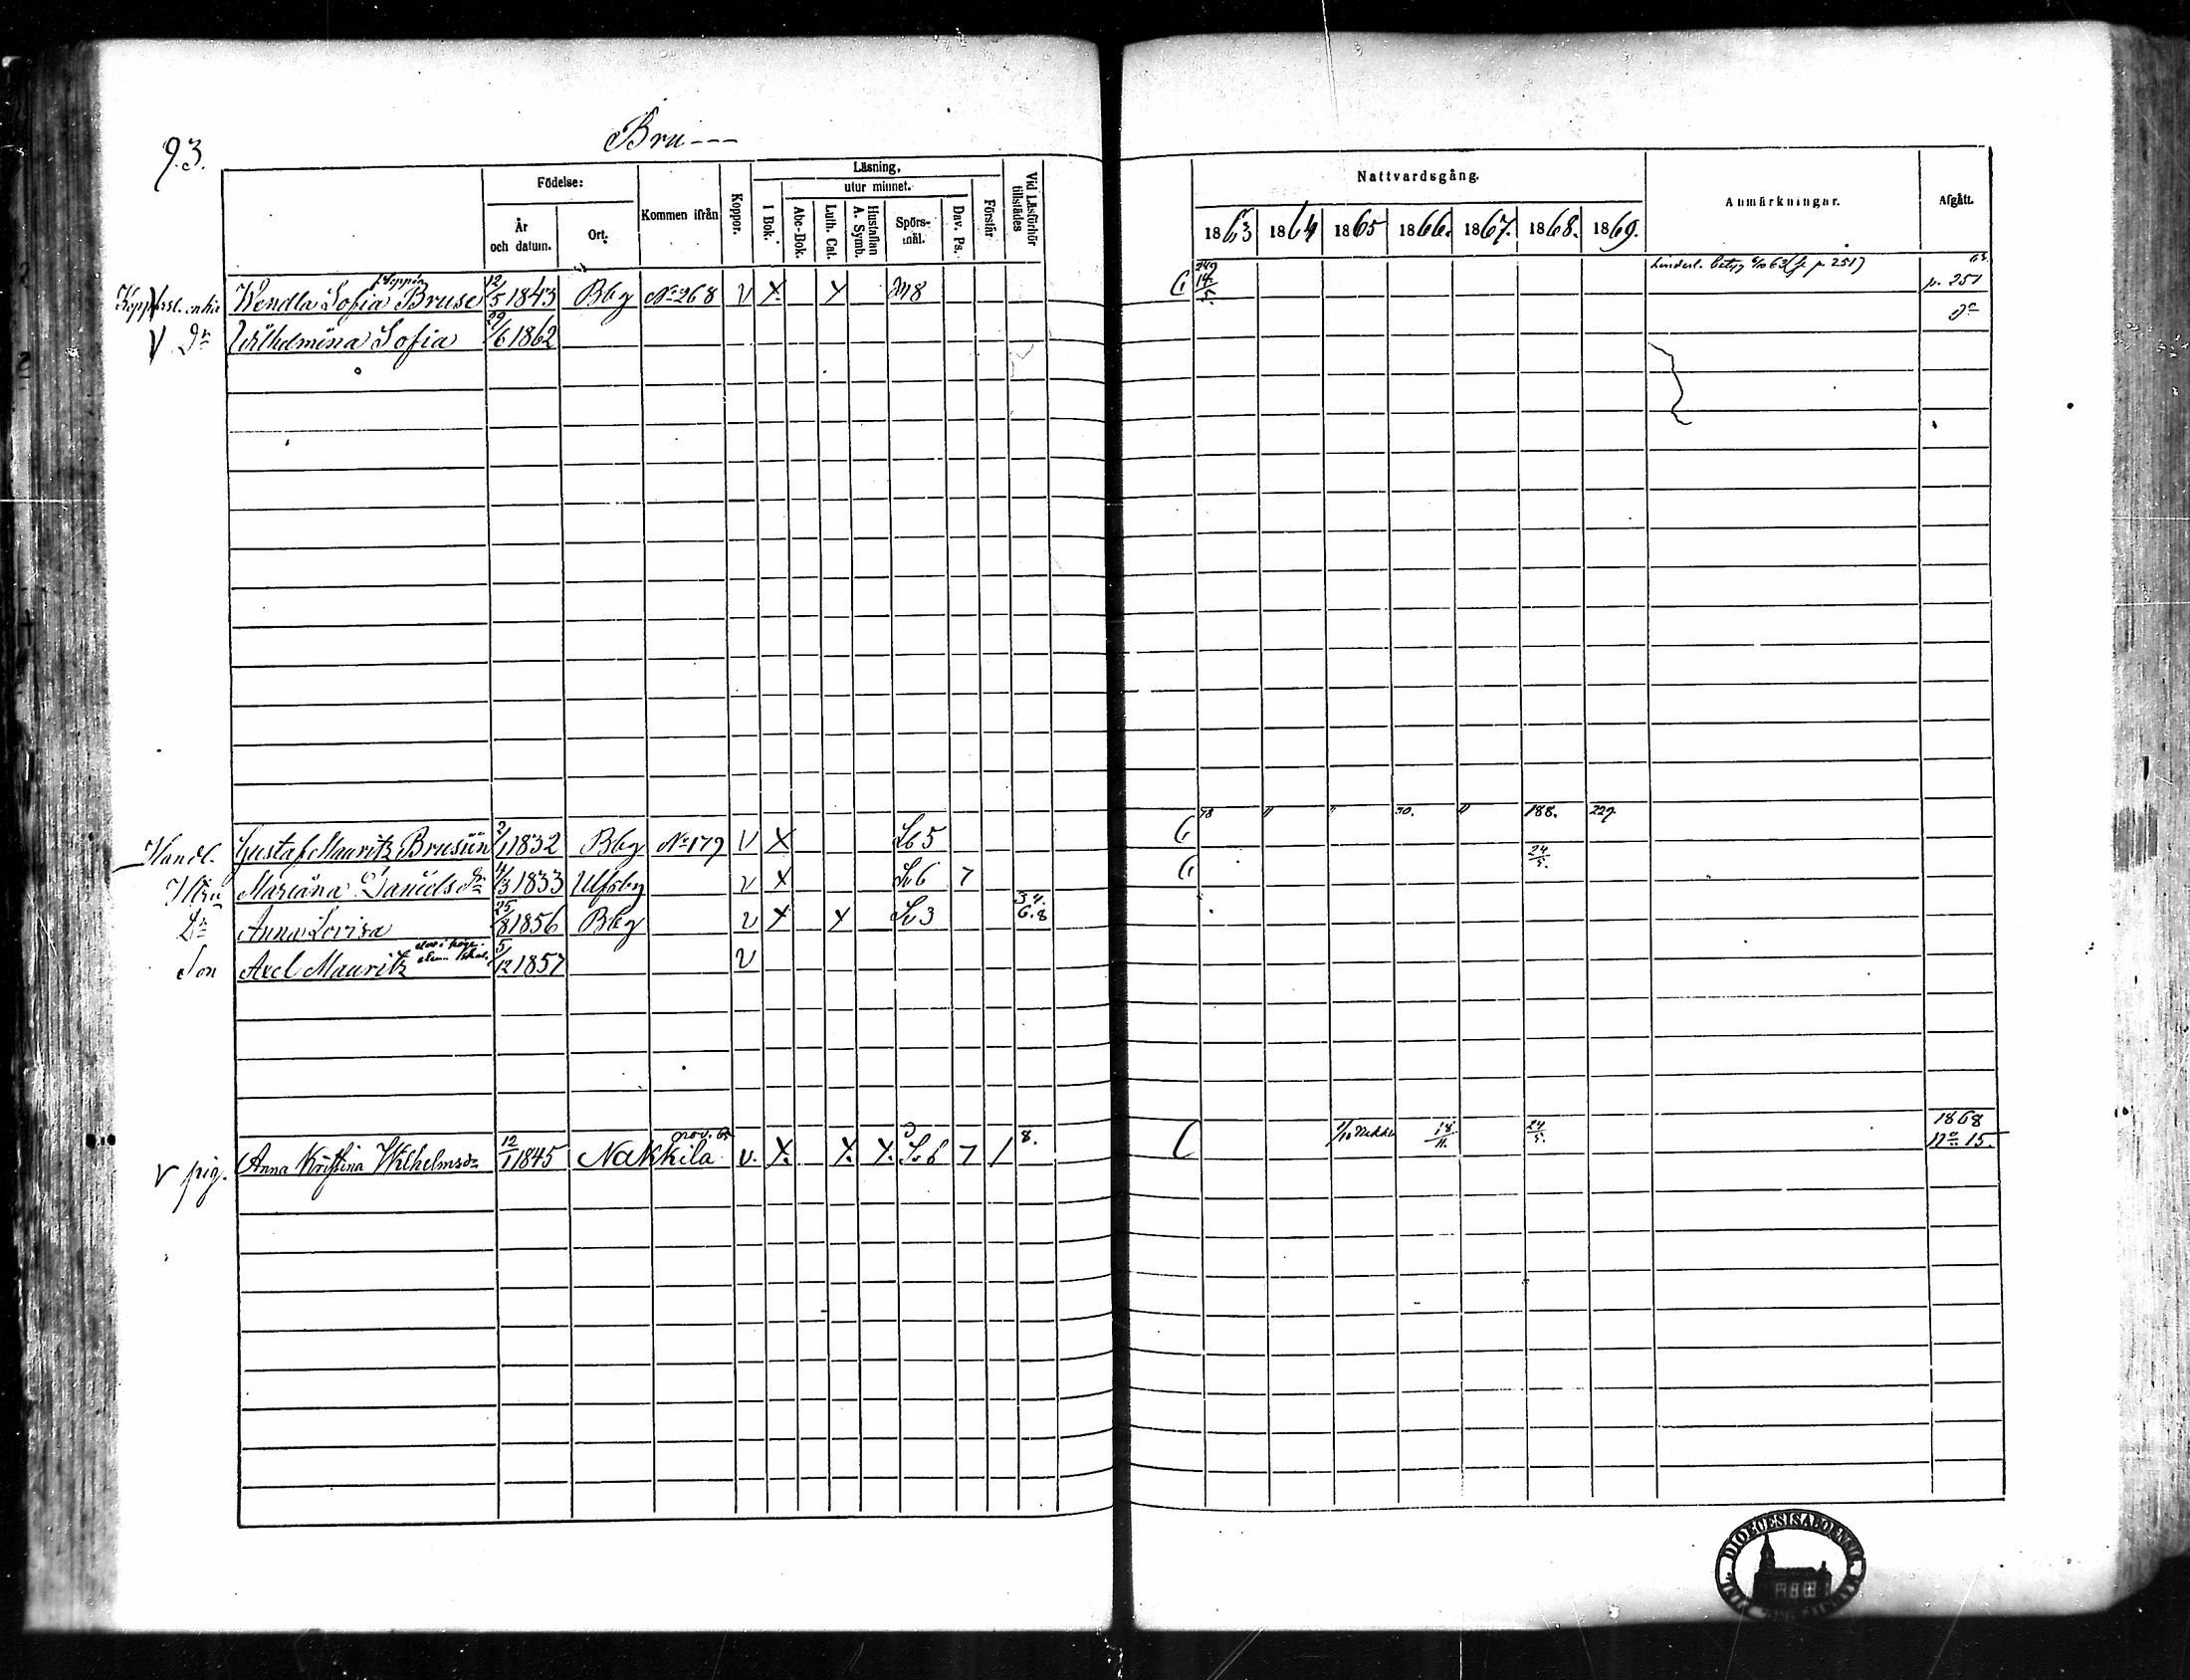 93.
Bru---
Födelse:
År och datum.
Ort.
Kommen ifrån
Koppor.
Läsning,
I Bok.
utur minnet.
Abc-Bok.
Luth. Cat.
Hustaflan A. Symb.
Spörs-mål.
Dav. Ps.
Förstår
Vid Läsförhör tillstädes
Nattvardsgång.
1863 1864 1865 1866. 1867. 1868. 1869.
Anmärkningar.
Afgått.
Wendla Sofia Bruse 12/5 1843 Bbg No 268 v X X M8 C 249 14/5. p. 251
v Dr Wilhelmina Sofia 29/6 1862 Do
Handl. Gustaf Mauritz Brusiin 2/1 1832 Bbg No 179 v X Lb 5 C 78 " " 30. " 188. 229.
Hru Mariana Danielsdr 4/3 1833 Ulfsby v X Lv 6 7 C 24/5.
Dr Anna Lovisa 25/8 1856 Bbg v X X Lv 3 34. 6.8
Son Axel Mauritz 5/12 1857 v
v pig. Anna Kristina Wilhelmsdr 12/1 1845 Nakkila v. X. X. X. Lv 6 7 / 8. C 18/11. 24/5. 1868 No. 15.
DIOECESIS ABOENSIS